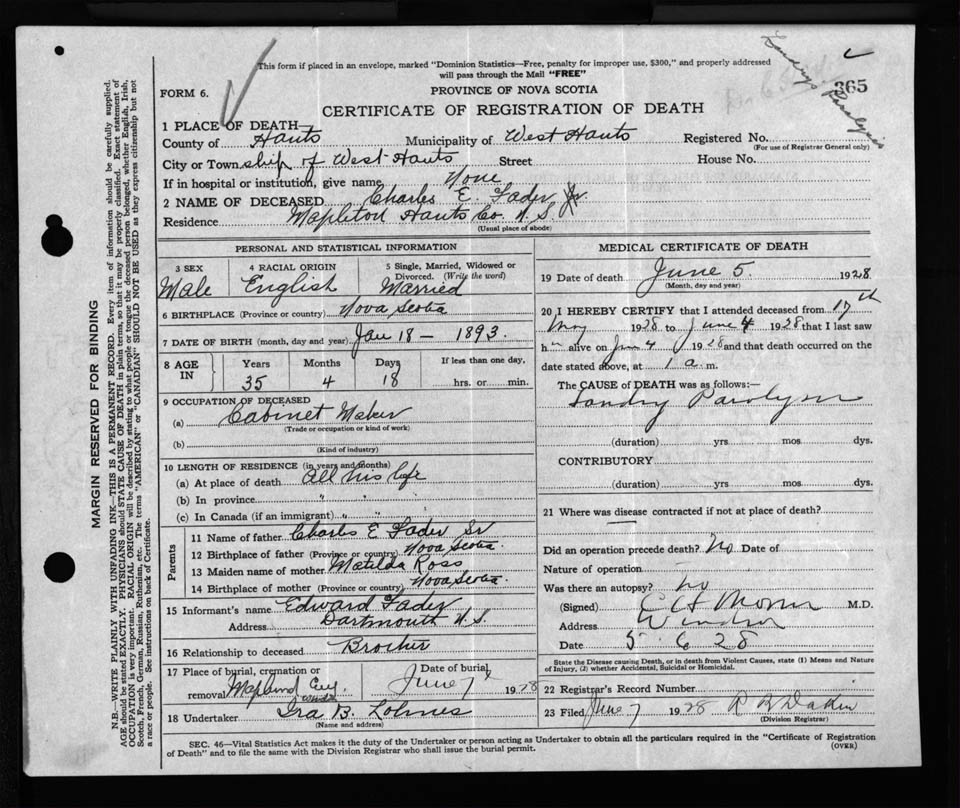 This form if placed in an envelope, marked "Dominion Statistics—Free, penalty for improper use, $300," and properly addressed
will pass through the Mail "FREE"
FORM 6.
PROVINCE OF NOVA SCOTIA
665
Landry's Paralysis
CERTIFICATE OF REGISTRATION OF DEATH
1 PLACE OF DEATH—
County of Hants Municipality of West Hants Registered No.
(For use of Registrar General only)
City or Township of West Hants Street House No.
If in hospital or institution, give name None
2 NAME OF DECEASED Charles E. Fader Jr.
Residence Mapleton Hants Co. N.S.
(Usual place of abode)
PERSONAL AND STATISTICAL INFORMATION
3 SEX
Male
4 RACIAL ORIGIN
English
5 Single, Married, Widowed or
Divorced. (Write the word)
Married
6 BIRTHPLACE (Province or country) Nova Scotia
7 DATE OF BIRTH (month, day and year) Jan 18 — 1893.
8 AGE
IN
Years
35
Months
4
Days
18
If less than one day,
hrs. or min.
9 OCCUPATION OF DECEASED
(a) Cabinet Maker
(Trade or occupation or kind of work)
(b)
(Kind of industry)
10 LENGTH OF RESIDENCE (in years and months)
(a) At place of death All his life
(b) In province " "
(c) In Canada (if an immigrant) " "
Parents
11 Name of father Charles E Fader Sr
12 Birthplace of father (Province or country) Nova Scotia.
13 Maiden name of mother Matilda Ross
14 Birthplace of mother (Province or country) Nova Scotia.
15 Informant's name Edward Fader
Address Dartmouth N.S.
16 Relationship to deceased Brother
17 Place of burial, cremation or
removal
Date of burial
June 7 1928
18 Undertaker Ira B. Lohnes
(Name and address)
MEDICAL CERTIFICATE OF DEATH
19 Date of death June 5. 1928
(Month, day and year)
20 I HEREBY CERTIFY that I attended deceased from 17th
May 1928 to June 4 1928 that I last saw
h alive on June 4 1928 and that death occurred on the
date stated above, at 1 a. m.
The CAUSE of DEATH was as follows:—
Landry Paralysis
(duration) yrs mos dys.
CONTRIBUTORY
(duration) yrs mos dys.
21 Where was disease contracted if not at place of death?
Did an operation precede death? No Date of
Nature of operation
Was there an autopsy? No
(Signed) M.D.
Address Windsor
Date 5 6 28
State the Disease causing Death, or in death from Violent Causes, state (1) Means and Nature
of Injury, (2) whether Accidental, Suicidal or Homicidal.
22 Registrar's Record Number
23 Filed June 7 1928
(Division Registrar)
SEC. 46—Vital Statistics Act makes it the duty of the Undertaker or person acting as Undertaker to obtain all the particulars required in the "Certificate of Registration
of Death" and to file the same with the Division Registrar who shall issue the burial permit.
(OVER)
MARGIN RESERVED FOR BINDING
N.B.—WRITE PLAINLY WITH UNFADING INK—THIS IS A PERMANENT RECORD. Every item of information should be carefully supplied.
AGE should be stated EXACTLY. PHYSICIANS should STATE CAUSE OF DEATH in plain terms, so that it may be properly classified. Exact statement of
OCCUPATION is very important. RACIAL ORIGIN will be described by stating to what people or tongue the deceased person belonged, whether English, Irish,
Scotch, French, German, Russian, Ruthenian, etc. The terms "AMERICAN" or "CANADIAN" SHOULD NOT BE USED as they express citizenship but not
a race or people. See instructions on back of Certificate.